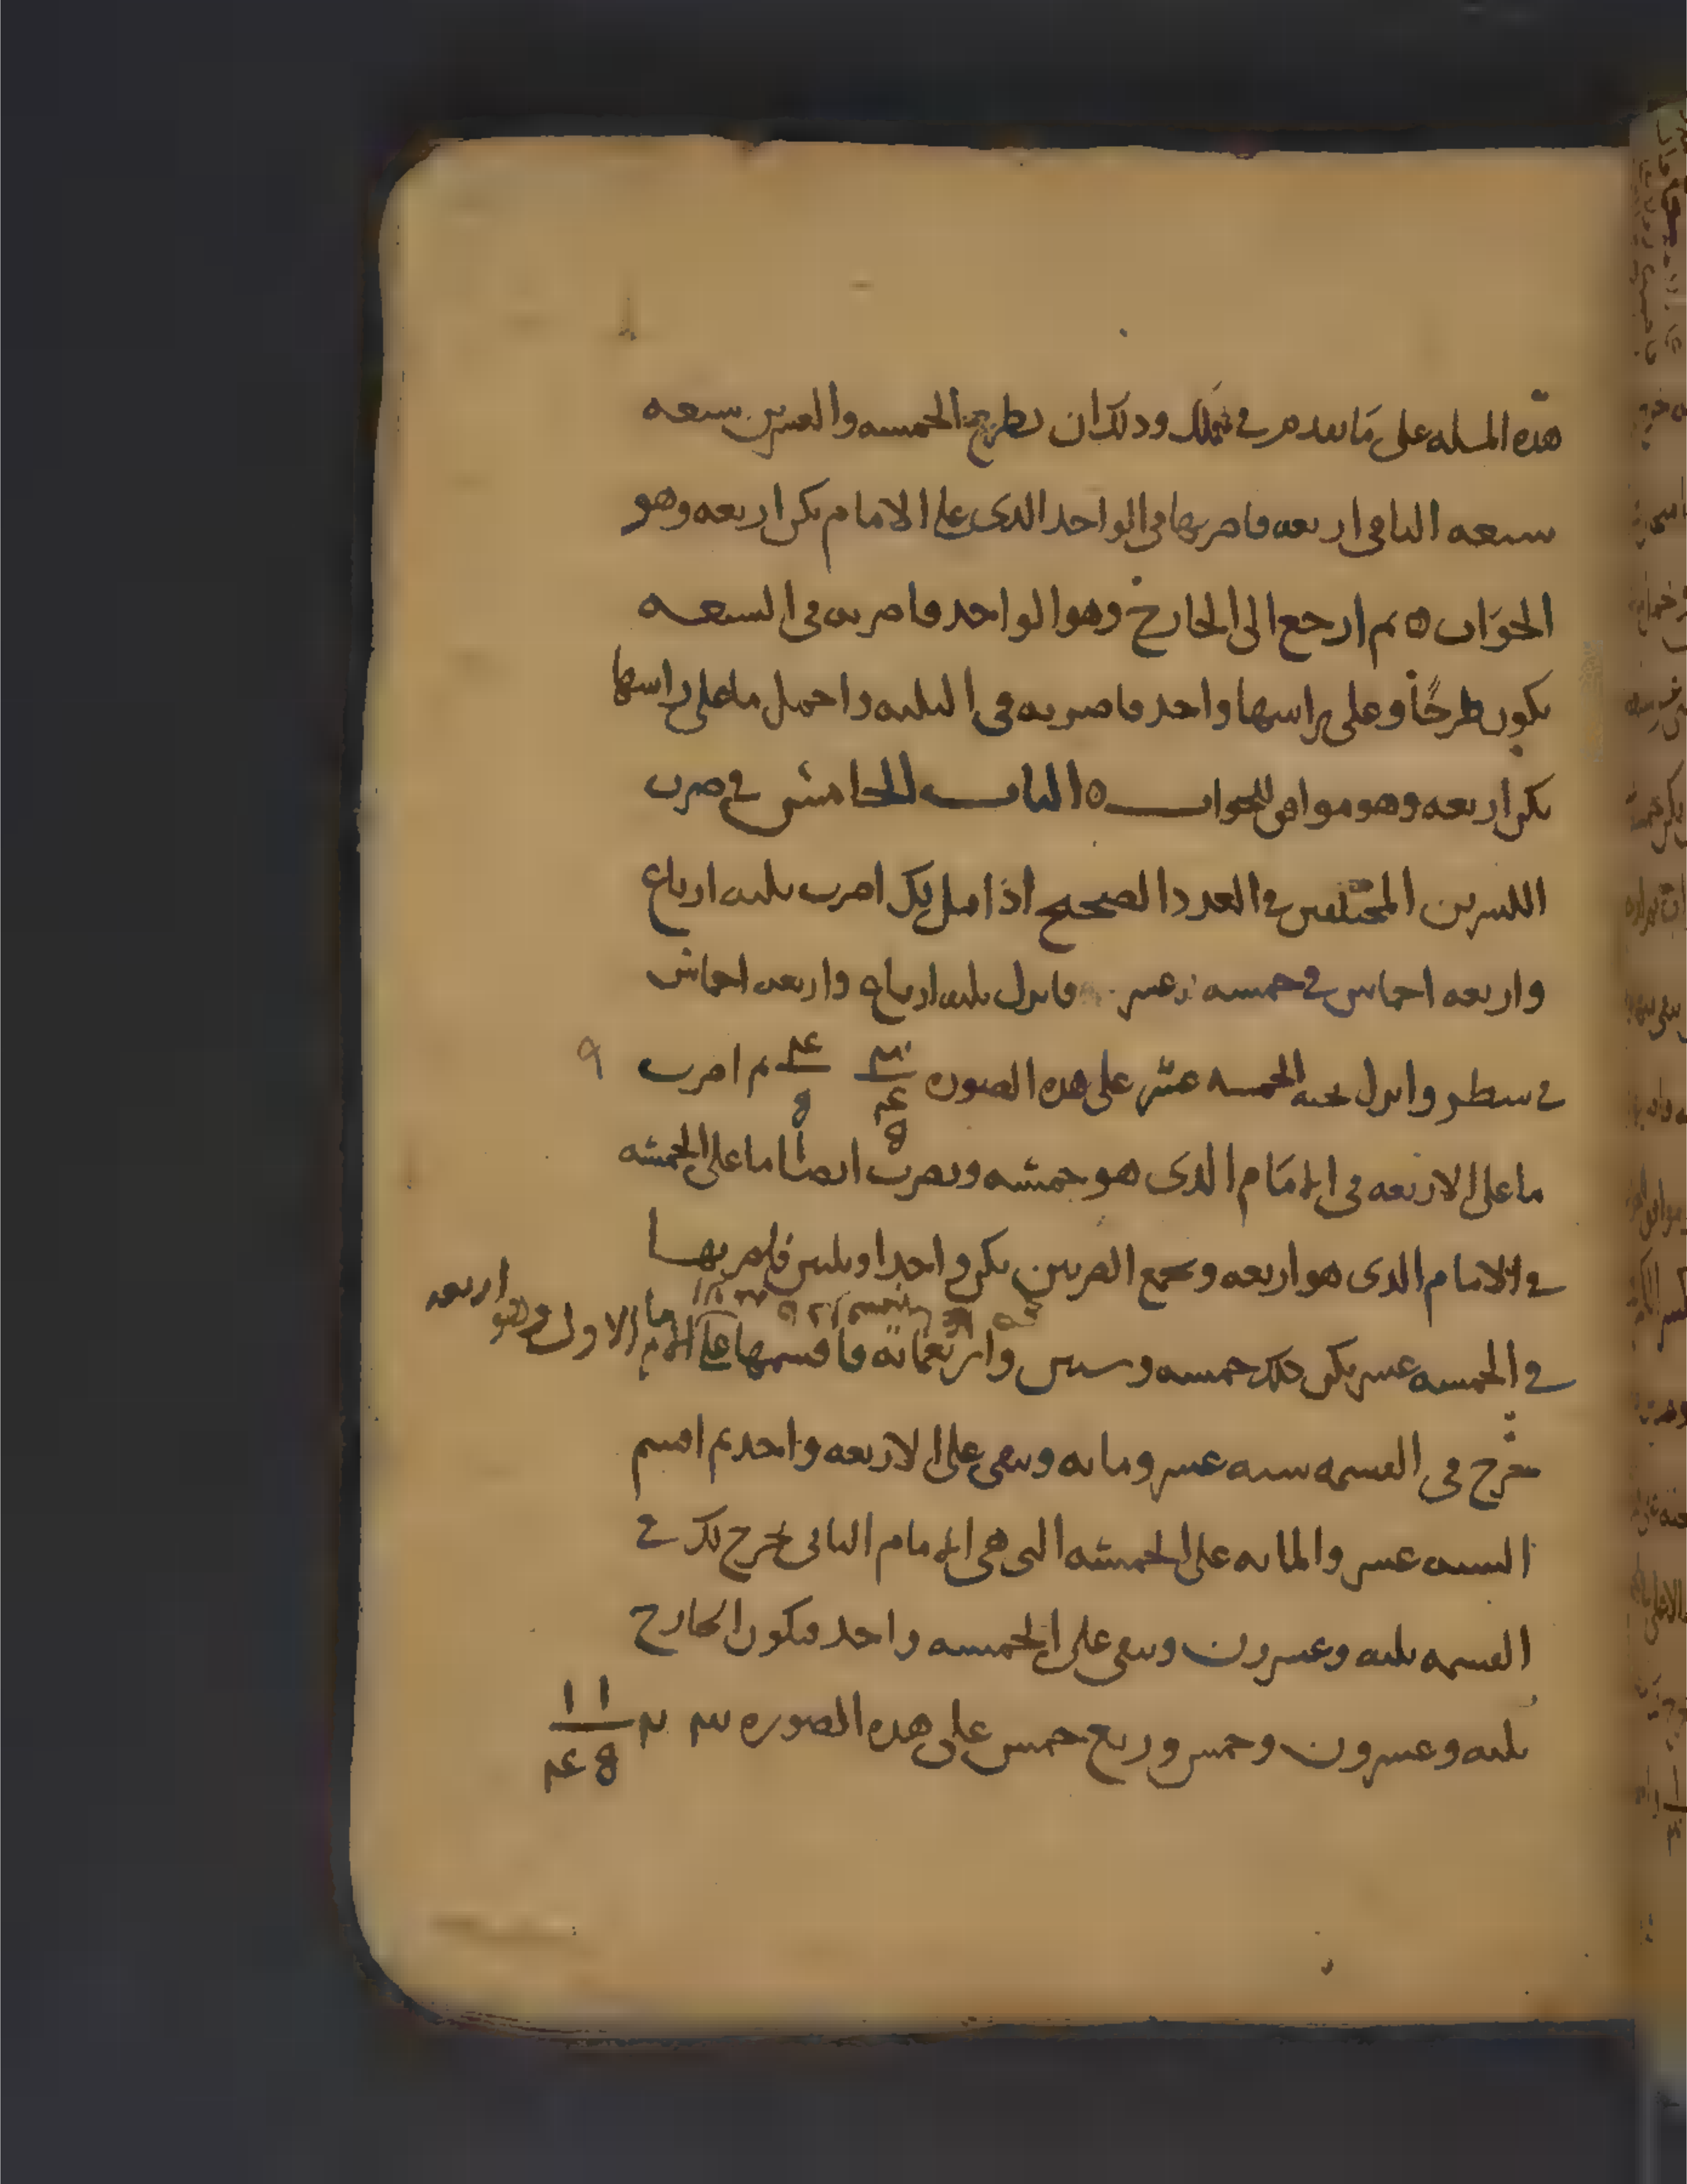 هذه المسله على ما تقدم في عملك وذلك ان تطرح الخمسه والعشرين تسعه
تسعه الباقي اربعه فاضربها في الواحد الذي على الامام يكن اربعه وهو
الجواب ه ثم ارجع الى الخارج وهو الواحد فاضربه في السبعه
يكون طرحًا وعلى راسها واحد فاضربه في الثلثه واحمل ما على راسها
يكن اربعه وهو موافق للجواب ه الباب الخامس في ضرب
الكسرين المختلفين في العدد الصحيح اذا قيل لك اضرب ثلثه ارباع
واربعه اخماس في خمسه عشر فانزل ثلثه ارباع واربعه اخماس
في سطر وانزل تحته الخمسه عشر على هذه الصوره ٣/٤ ٤/٥ ثم اضرب
ما على الاربعه في الامام الذي هو خمسه وتضرب ايضا ما على الخمسه
في الامام الذي هو اربعه وتجمع الضربين يكن واحدا وثلثين فاضربها
في الخمسه عشر يكن ذلك خمسه وستين واربعمائة فاقسمها على الامام الاول وهو اربعه
يخرج في القسمه سته عشر ومائه ويبقى على الاربعه واحد ثم اقسم
السته عشر والمائه على الخمسه التي هي الامام الثاني يخرج لك في
القسمه ثلثه وعشرون ويبقى على الخمسه واحد فيكون الخارج
ثلثه وعشرون وخمس وربع خمس على هذه الصوره ٢٣ ١ ١/٤ ٥